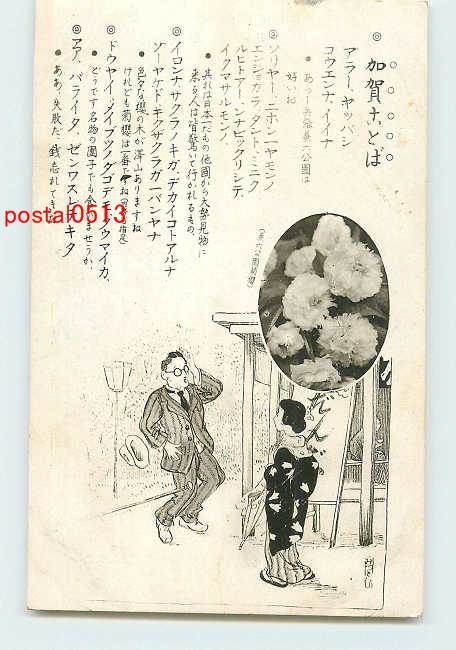 ◎ 加賀ことば
アラー、ヤッパシ
コウエンナ、イイナ
● あらー矢張兼六公園は
好いね
◎ ソリヤー、ニホンニヤモンノ
エンジョカラ、タント、ミニク
ルヒトアー、ンナビックリシテ、
イクマサルモンノ、
● 其れは日本だもの他国から大勢見物に
来る人は皆驚いて行かれるもの、
◎ イロンナサクラノキガ、デカイコトアルナ
ソーヤケド、キクザクラガーバンヤナ
● 色々な櫻の木が澤山ありますね
けれども菊櫻は一番でね
◎ ドウヤイ、メイブツノダゴデモ、クウマイカ、
● どうです名物の團子でも食べませうか、
◎ アア、バライタ、ゼンワスレテキタ
● ああ、失敗だ、銭忘れてきた
(兼六公園菊櫻)
postal0513